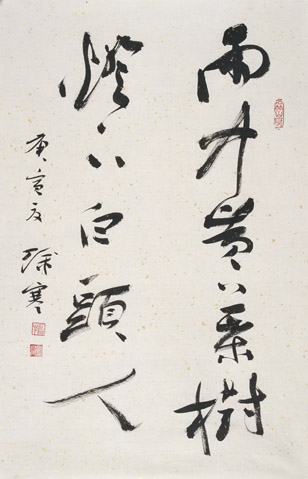 雨中黄葉樹
燈下白頭人
庚寅夏 徐寒